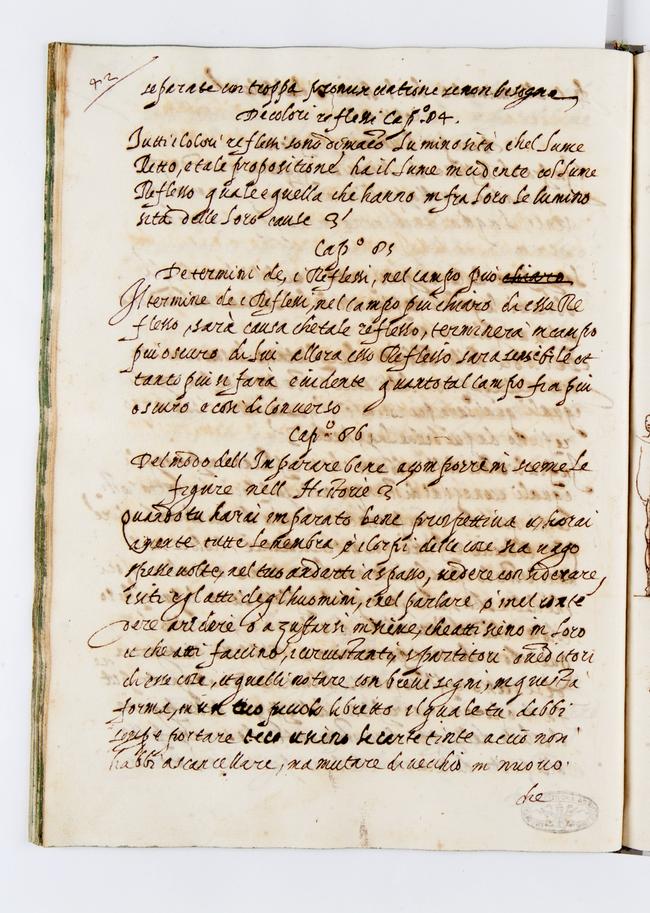 42
separate con troppa pronunciatione se non besogna
De colori reflessi Cap.º 84.
Tutti i colori reflessi sono di maco luminosità che l lume
Retto, e tale propositione ha il lume incidente col lume
Reflesso quale e quella che hanno infra loro le lumino
sità delle loro cause
Cap.º 85
De termini de, i Reflessi, nel campo piu chiaro
Il termine de i Reflessi, nel campo piu chiaro da esso Re
flesso, sarà causa che tale reflesso, terminerà in campo
piu oscuro di lui allora esso Reflesso sara sensibile et
tanto piu si farà evidente quanto tal campo fia piu
oscuro e cosi di converso
Cap.º 86
Del modo dell Imparare bene a comporre insieme le
figure nell Historie
Quando tu harai imparato bene prospettiva et harai
a mente tutte le membra e i corpi delle cose sia vago
spesse volte, nel tuo andarti a spasso, vedere considerare,
i siti e gl atti degl huomini, i nel parlare o nel conte
dere o ridere o azuffarsi insieme, che atti sieno in loro
et che atti faccino, i circustanti, spartitori o veditori
di esse cose, et quelli notare con brevi segni, in questa
forma, in un tuo piculo libretto il quale tu debbi
sempre portare teco et sieno le carte tinte accio non
habbi a scancellare, ma mutare di vecchio in nuovo.
che